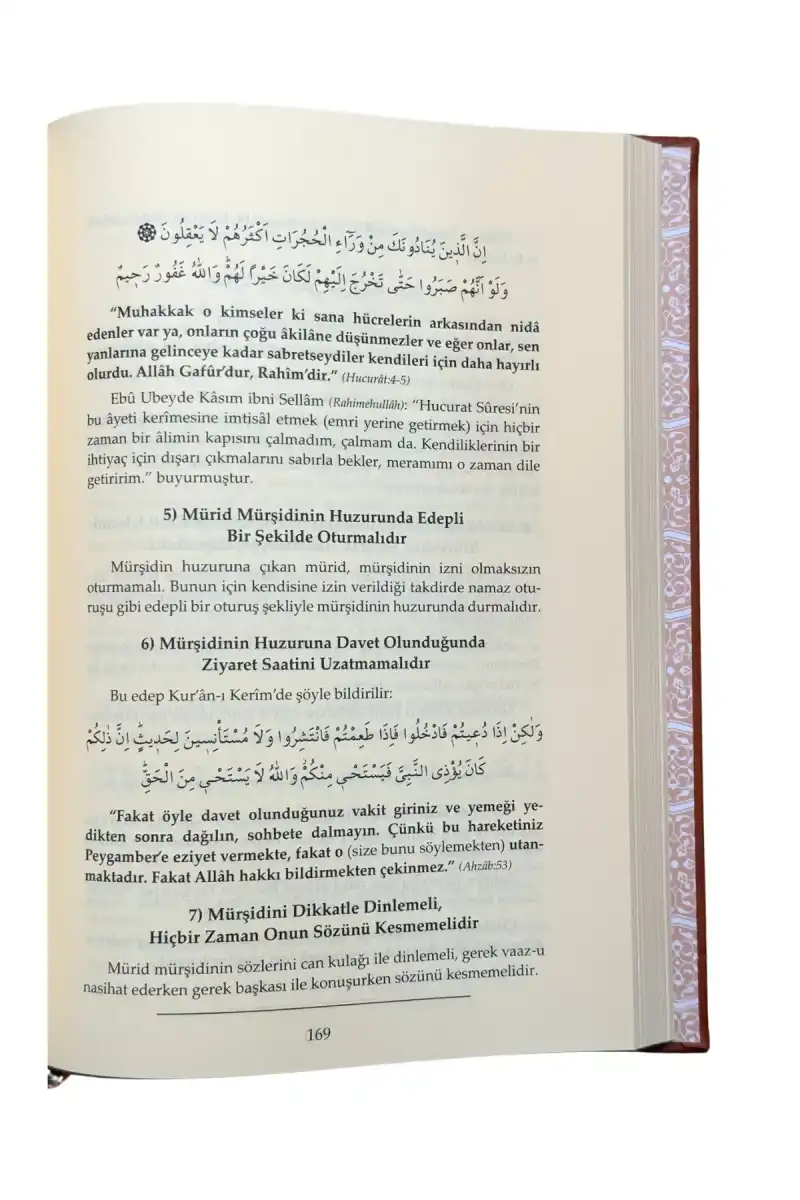 اِنَّ الَّذ۪ينَ يُنَادُونَكَ مِنْ وَرَٓاءِ الْحُجُرَاتِ اَكْثَرُهُمْ لَا يَعْقِلُونَ ۞
وَلَوْ اَنَّهُمْ صَبَرُوا حَتّٰى تَخْرُجَ اِلَيْهِمْ لَكَانَ خَيْرًا لَهُمْۜ وَاللّٰهُ غَفُورٌ رَح۪يمٌ
“Muhakkak o kimseler ki sana hücrelerin arkasından nidâ
edenler var ya, onların çoğu âkilâne düşünmezler ve eğer onlar, sen
yanlarına gelinceye kadar sabretseydiler kendileri için daha hayırlı
olurdu. Allâh Gafûr’dur, Rahîm’dir.” (Hucurât:4-5)
Ebû Ubeyde Kâsım ibni Sellâm (Rahimehullâh): “Hucurat Sûresi’nin
bu âyeti kerîmesine imtisâl etmek (emri yerine getirmek) için hiçbir
zaman bir âlimin kapısını çalmadım, çalmam da. Kendiliklerinin bir
ihtiyaç için dışarı çıkmalarını sabırla bekler, meramımı o zaman dile
getiririm.” buyurmuştur.
5) Mürid Mürşidinin Huzurunda Edepli
Bir Şekilde Oturmalıdır
Mürşidin huzuruna çıkan mürid, mürşidinin izni olmaksızın
oturmamalı. Bunun için kendisine izin verildiği takdirde namaz otu-
ruşu gibi edepli bir oturuş şekliyle mürşidinin huzurunda durmalıdır.
6) Mürşidinin Huzuruna Davet Olunduğunda
Ziyaret Saatini Uzatmamalıdır
Bu edep Kur’ân-ı Kerîm’de şöyle bildirilir:
وَلٰكِنْ اِذَا دُع۪يتُمْ فَادْخُلُوا فَاِذَا طَعِمْتُمْ فَانْتَشِرُوا وَلَا مُسْتَأْنِس۪ينَ لِحَد۪يثٍۜ اِنَّ ذٰلِكُمْ
كَانَ يُؤْذِى النَّبِيَّ فَيَسْتَحْي۪ مِنْكُمْۘ وَاللّٰهُ لَا يَسْتَحْي۪ مِنَ الْحَقِّۜ
“Fakat öyle davet olunduğunuz vakit giriniz ve yemeği ye-
dikten sonra dağılın, sohbete dalmayın. Çünkü bu hareketiniz
Peygamber’e eziyet vermekte, fakat o (size bunu söylemekten) utan-
maktadır. Fakat Allâh hakkı bildirmekten çekinmez.” (Ahzâb:53)
7) Mürşidini Dikkatle Dinlemeli,
Hiçbir Zaman Onun Sözünü Kesmemelidir
Mürid mürşidinin sözlerini can kulağı ile dinlemeli, gerek vaaz-u
nasihat ederken gerek başkası ile konuşurken sözünü kesmemelidir.
169